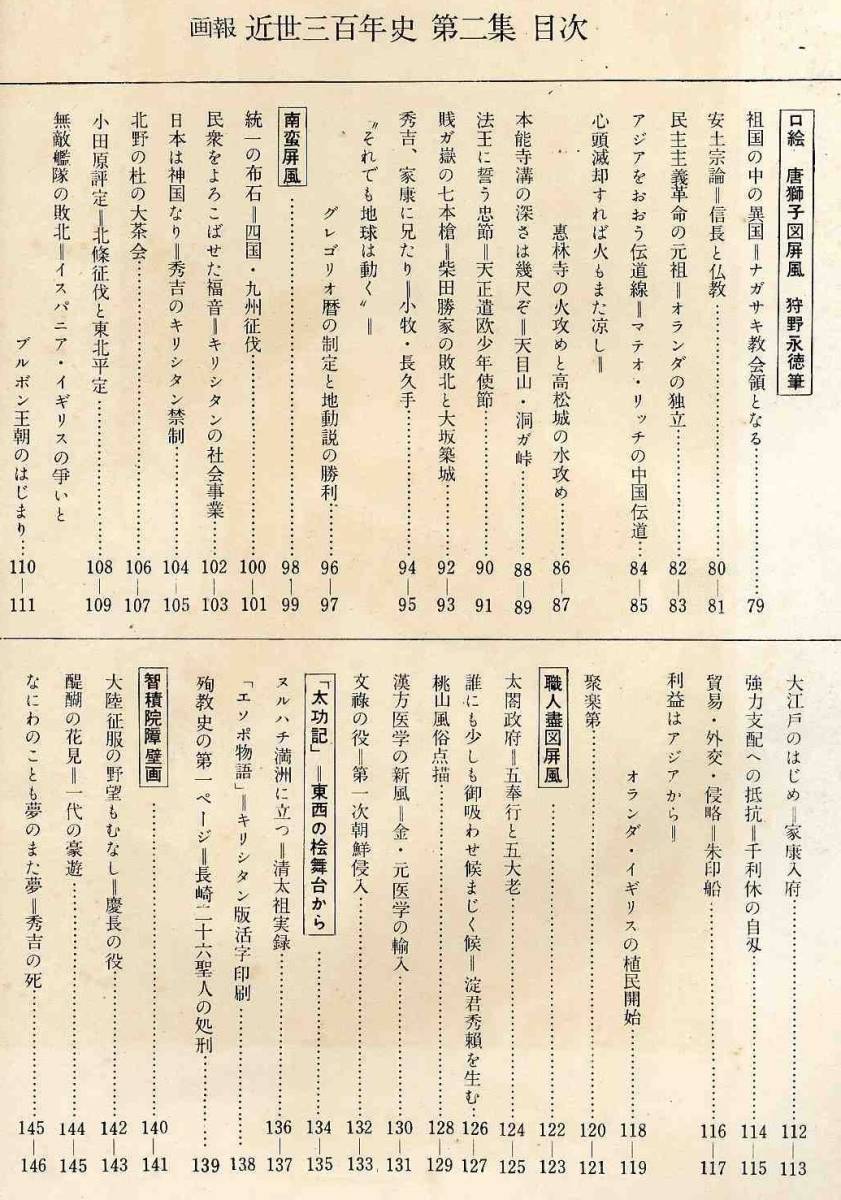 画報 近世三百年史 第二集 目次
口絵 唐獅子図屏風 狩野永徳筆
祖国の中の異国＝ナガサキ教会領となる……79
安土宗論＝信長と仏教……80—81
民主主義革命の元祖＝オランダの独立……82—83
アジアをおおう伝道線＝マテオ・リッチの中国伝道…84—85
心頭滅却すれば火もまた凉し＝
恵林寺の火攻めと高松城の水攻め……86—87
本能寺溝の深さは幾尺ぞ＝天目山・洞ガ峠……88—89
法王に誓う忠節＝天正遣欧少年使節……90—91
賎ガ嶽の七本槍＝柴田勝家の敗北と大坂築城……92—93
秀吉、家康に兄たり＝小牧・長久手……94—95
〝それでも地球は動く〟＝
グレゴリオ暦の制定と地動説の勝利……96—97
南蛮屏風……98—99
統一の布石＝四国・九州征伐……100—101
民衆をよろこばせた福音＝キリシタンの社会事業……102—103
日本は神国なり＝秀吉のキリシタン禁制……104—105
北野の杜の大茶会……106—107
小田原評定＝北條征伐と東北平定……108—109
無敵艦隊の敗北＝イスパニア・イギリスの爭いと
ブルボン王朝のはじまり…110—111
大江戸のはじめ＝家康入府……112—113
強力支配への抵抗＝千利休の自刄……114—115
貿易・外交・侵略＝朱印船……116—117
利益はアジアから＝
オランダ・イギリスの植民開始……118—119
聚楽第……120—121
職人盡図屏風……122—123
太閤政府＝五奉行と五大老……124—125
誰にも少しも御吸わせ候まじく候＝淀君秀頼を生む…126—127
桃山風俗点描……128—129
漢方医学の新風＝金・元医学の輸入……130—131
文祿の役＝第一次朝鮮侵入……132—133
「太功記」＝東西の桧舞台から……134—135
ヌルハチ満洲に立つ＝清太祖実録……136—137
「エソポ物語」＝キリシタン版活字印刷……138
殉教史の第一ページ＝長崎二十六聖人の処刑……139
智積院障壁画……140—141
大陸征服の野望もむなし＝慶長の役……142—143
醍醐の花見＝一代の豪遊……144—145
なにわのことも夢のまた夢＝秀吉の死……145—146